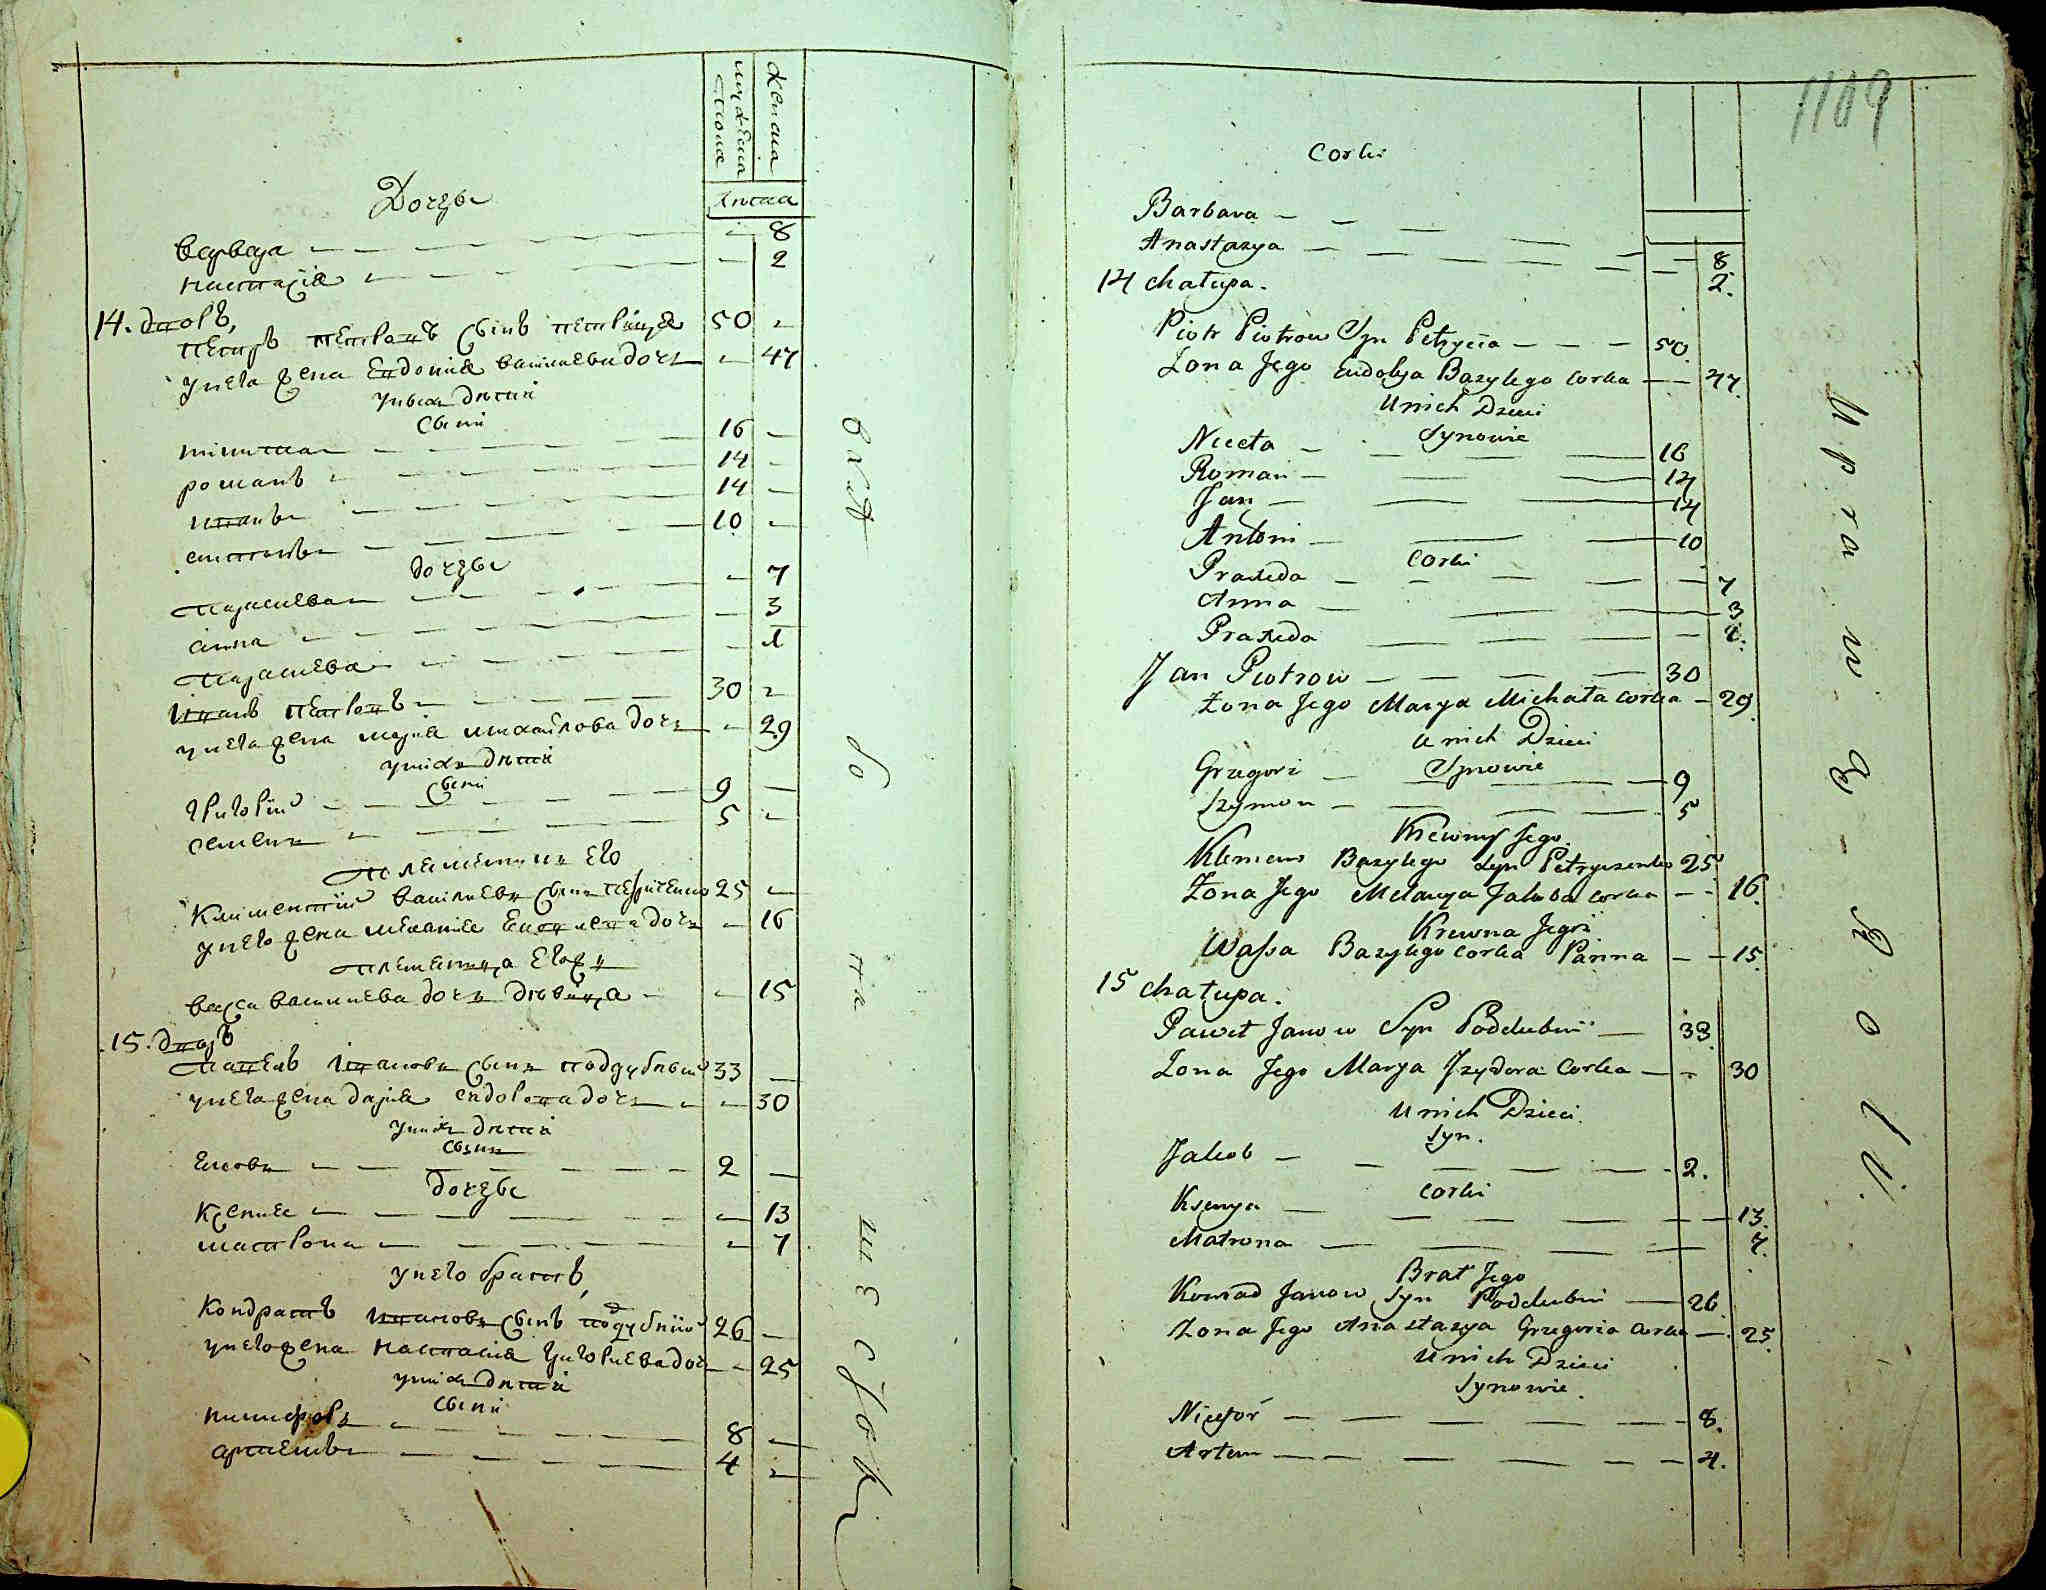 мужеска пола
женска
лета
Дочери
варвара — — 8
настасія — — 2
14. дворъ,
петръ петровъ сынъ петрица 50 —
у него жена евдокия васильева дочь — 47
у них дети
сыни
никита — 16 —
романъ — 14 —
иванъ — 14 —
антонъ — 10 —
дочери
парасковия — 7
анна — 3
параскева — 1
Иванъ петровъ — 30 —
у него жена марія михаилова дочь — 29
у них дети
сыни
григорій — 9 —
семенъ — 5 —
племянник его
Климентий васильевъ сынъ петриченко 25 —
у него жена мелания дочь — 16
племенница его
васса васильева дочь девица — — 15
15. дворъ
Павелъ Ивановъ сынъ поддубный 33 —
у него жена дочь — 30
у них дети
сынъ
Яковъ — 2 —
дочери
Ксения — — 13
матрона — — 7
у него братъ,
Кондратъ Ивановъ сынъ поддубний 26 —
у него жена настасия григориева дочь — 25
у них дети
сыни
никифоръ — 8 —
артемъ — 4 —
1169
Corki
Barbara — — 8
Anastazya — — 2.
14 chałupa.
Piotr Piotrow Syn Petryca — — — 50.
Zona Jego Eudokya Bazylego corka — — 47.
U nich Dzieci
Synowie
Niceta — 16
Roman — 14
Jan — 14
Antoni — 10
Corki
Praxeda — 7
Anna — 3
Praxeda — 1.
Jan Piotrow — 30
Żona Jego Marya Michała corka — 29.
U nich Dzieci
Synowie
Grzegorz — 9
Szymon — 5
Krewny Jego
Klemens Bazylego Syn Petryczenko 25
Żona Jego Melanya Jakoba corka — — 16.
Krewna Jegoż
Wassa Bazylego corka Panna — — 15.
15 chałupa.
Paweł Janow Syn Poddubni — 33.
Zona Jego Marya Jzydora Corka — — 30
U nich Dzieci.
Syn.
Jakob — 2.
Corki
Ksenya — 13.
Matrona — 7.
Brat Jego
Konrad Janow Syn Poddubni — 26
Żona Jego Anastazya Grzegorza Corka — 25.
U nich Dzieci
Synowie.
Nicefor — 8.
Artem — 4.